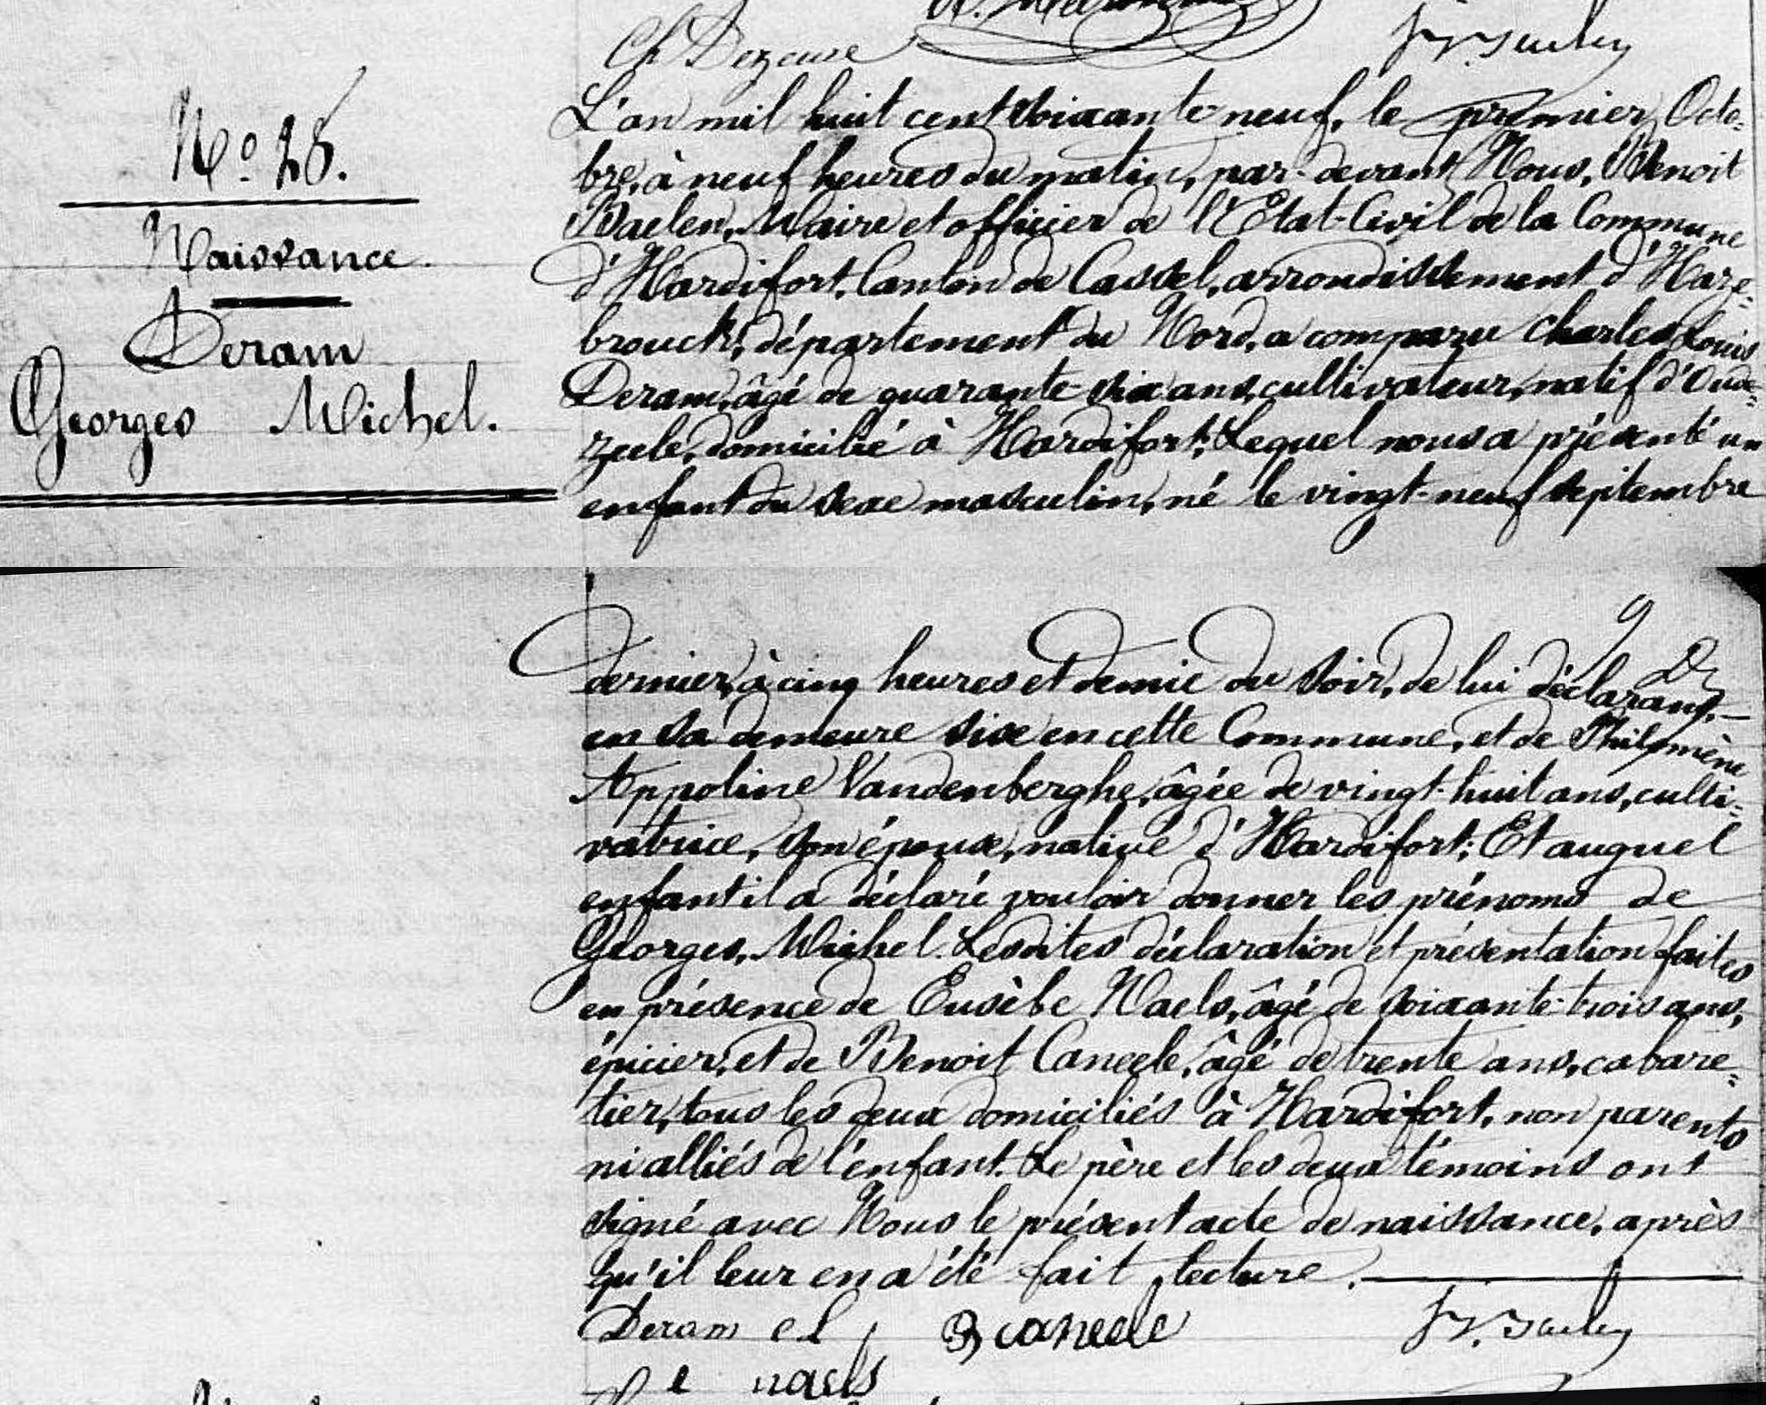 Ch Dezeure
N.º 28.
Naissance.
Deram
Georges Michel.
L'an mil huit cent soixante neuf, le premier Octo=
bre, à neuf heures du matin, par-devant Nous, Benoit
Baelen, Maire et officier de l'Etat-Civil de la Commune
d'Hardifort, Canton de Cassel, arrondissement d'Haze=
brouck, département du Nord, a comparu Charles Louis
Deram, âgé de quarante-six ans, cultivateur, natif d'Oude=
zeele, domicilié à Hardifort; Lequel nous a présenté un
enfant du sexe masculin, né le vingt-neuf septembre
9
dernier, à cinq heures et demie du soir, de lui déclarant,—
en sa demeure sise en cette Commune, et de Philomène
Appoline Vandenberghe, âgée de vingt-huit ans, culti=
vatrice, son épouse, native d'Hardifort; Et auquel
enfant il a déclaré vouloir donner les prénoms de
Georges, Michel. Lesdites déclaration et présentation faites
en présence de Eusèbe Naels, âgé de soixante-trois ans,
épicier, et de Benoit Caneele, âgé de trente ans, cabare=
tier, tous les deux domiciliés à Hardifort, non parents
ni alliés de l'enfant. Le père et les deux témoins ont
signé avec Nous le présent acte de naissance, après
qu'il leur en a été fait lecture.
Deram c l B caneele
naels